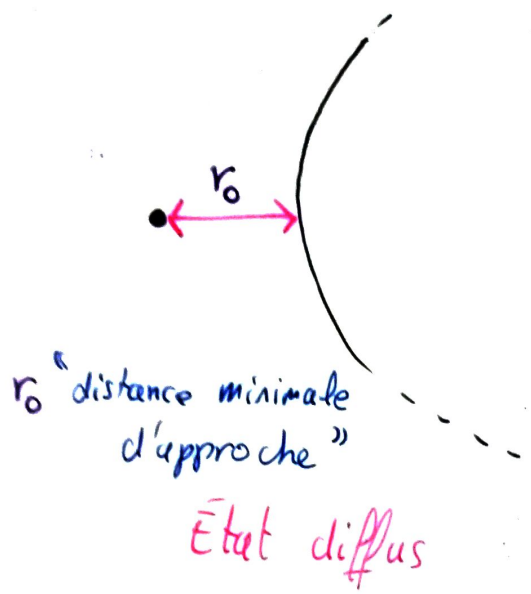 r₀
r₀ "distance minimale
d'approche"
État diffus